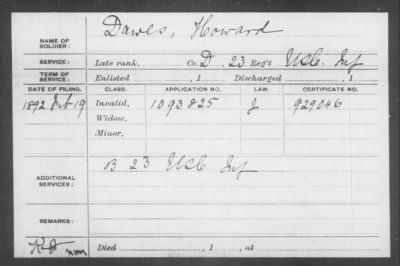 NAME OF SOLDIER: Dawes, Howard
SERVICE: Late rank, Co. D, 23 Reg't U.S.C. Inf
TERM OF SERVICE: Enlisted , 1 Discharged , 1
DATE OF FILING. CLASS. APPLICATION NO. LAW. CERTIFICATE NO.
1892 19 Invalid, 1093825 J 929046
Widow,
Minor,
ADDITIONAL SERVICES: B 23 U.S.C. Inf
REMARKS:
Died , 1 , at